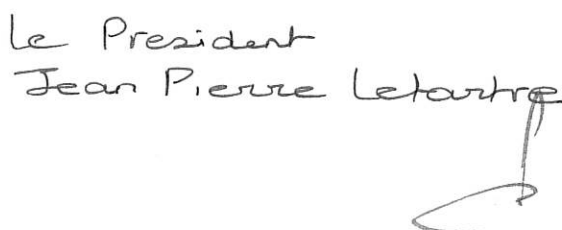 Le President
Jean Pierre Letartre